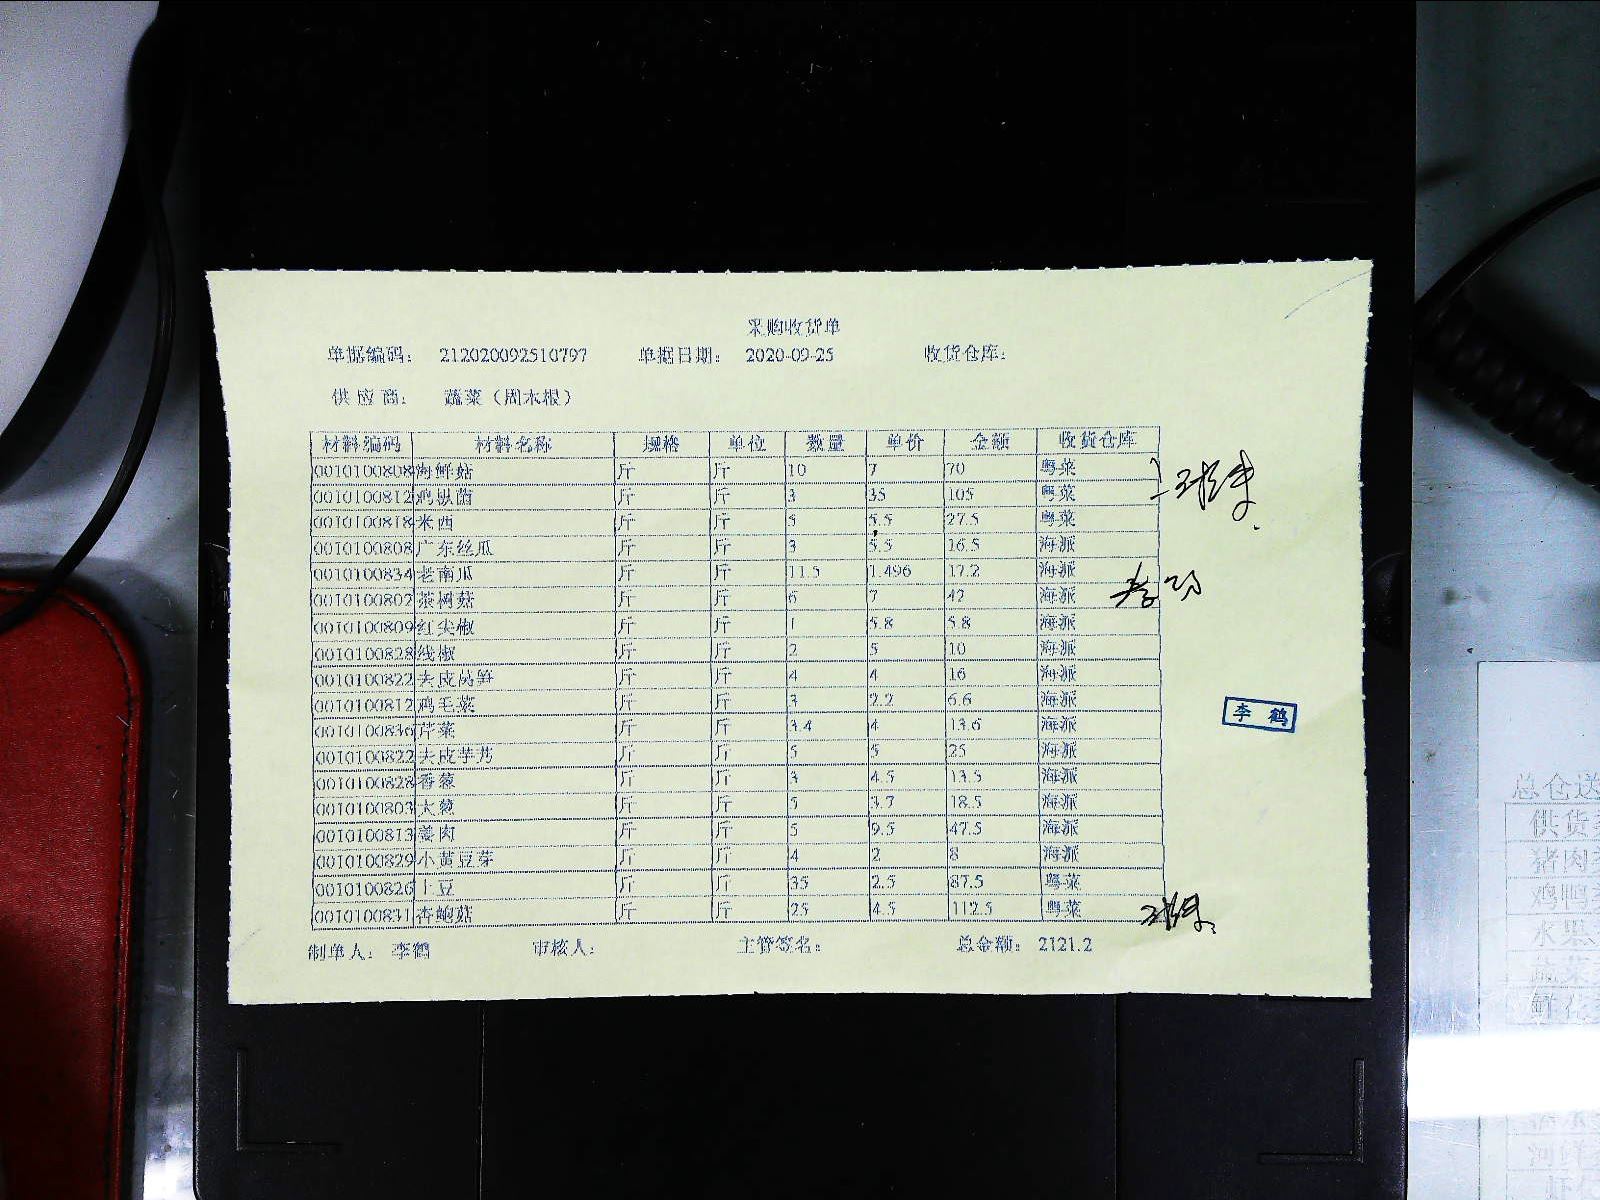 采购收货单
单据编码： 212020092510797 单据日期： 2020-09-25 收货仓库：
供应商： 蔬菜（周木根）
材料编码 材料名称 规格 单位 数量 单价 金额 收货仓库
0010100808 海鲜菇 斤 斤 10 7 70 粤菜
0010100812 鸡枞菌 斤 斤 3 35 105 粤菜
0010100818 米西 斤 斤 5 5.5 27.5 粤菜
0010100808 广东丝瓜 斤 斤 3 5.5 16.5 海派
0010100834 老南瓜 斤 斤 11.5 1.496 17.2 海派
0010100802 茶树菇 斤 斤 6 7 42 海派
0010100809 红尖椒 斤 斤 1 5.8 5.8 海派
0010100828 线椒 斤 斤 2 5 10 海派
0010100822 去皮莴笋 斤 斤 4 4 16 海派
0010100812 鸡毛菜 斤 斤 3 2.2 6.6 海派
0010100836 芹菜 斤 斤 3.4 4 13.6 海派
0010100822 去皮芋艿 斤 斤 5 5 25 海派
0010100828 香葱 斤 斤 3 4.5 13.5 海派
0010100803 大葱 斤 斤 5 3.7 18.5 海派
0010100813 姜肉 斤 斤 5 9.5 47.5 海派
0010100829 小黄豆芽 斤 斤 4 2 8 海派
0010100826 土豆 斤 斤 35 2.5 87.5 粤菜
0010100831 杏鲍菇 斤 斤 25 4.5 112.5 粤菜
制单人： 李鹤 审核人： 主管签名： 总金额： 2121.2
李 鹤
总仓送
供货
猪肉
鸡鸭
水果
蔬菜
鲜花